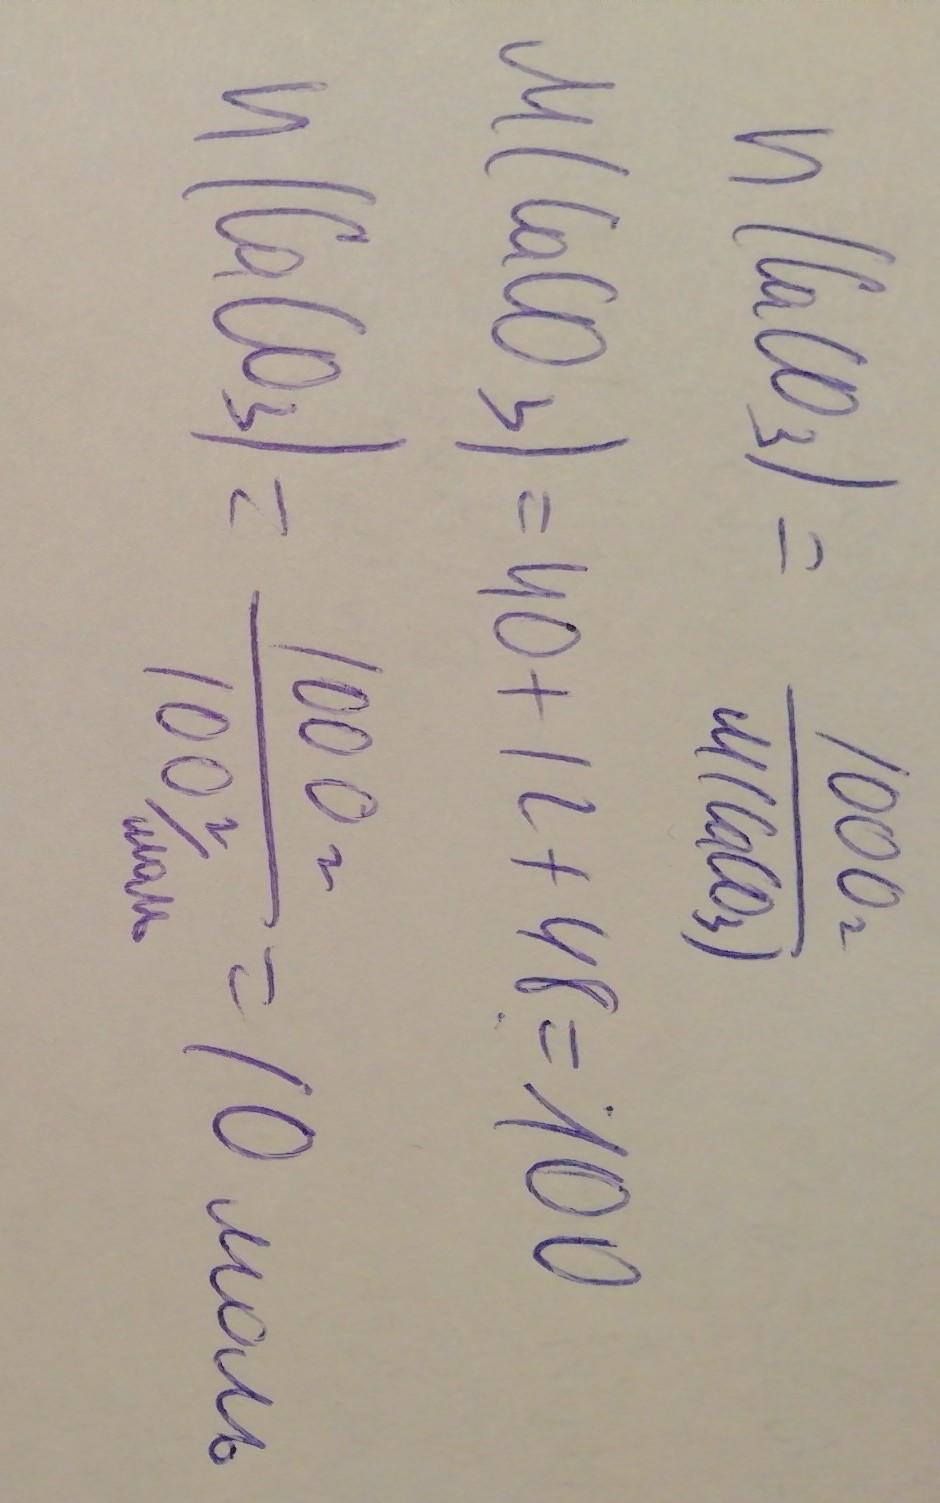 n(CaCO₃) = 1000г / M(CaCO₃)
M(CaCO₃) = 40+12+48=100
n(CaCO₃) = 1000г / 100 г/моль = 10 моль